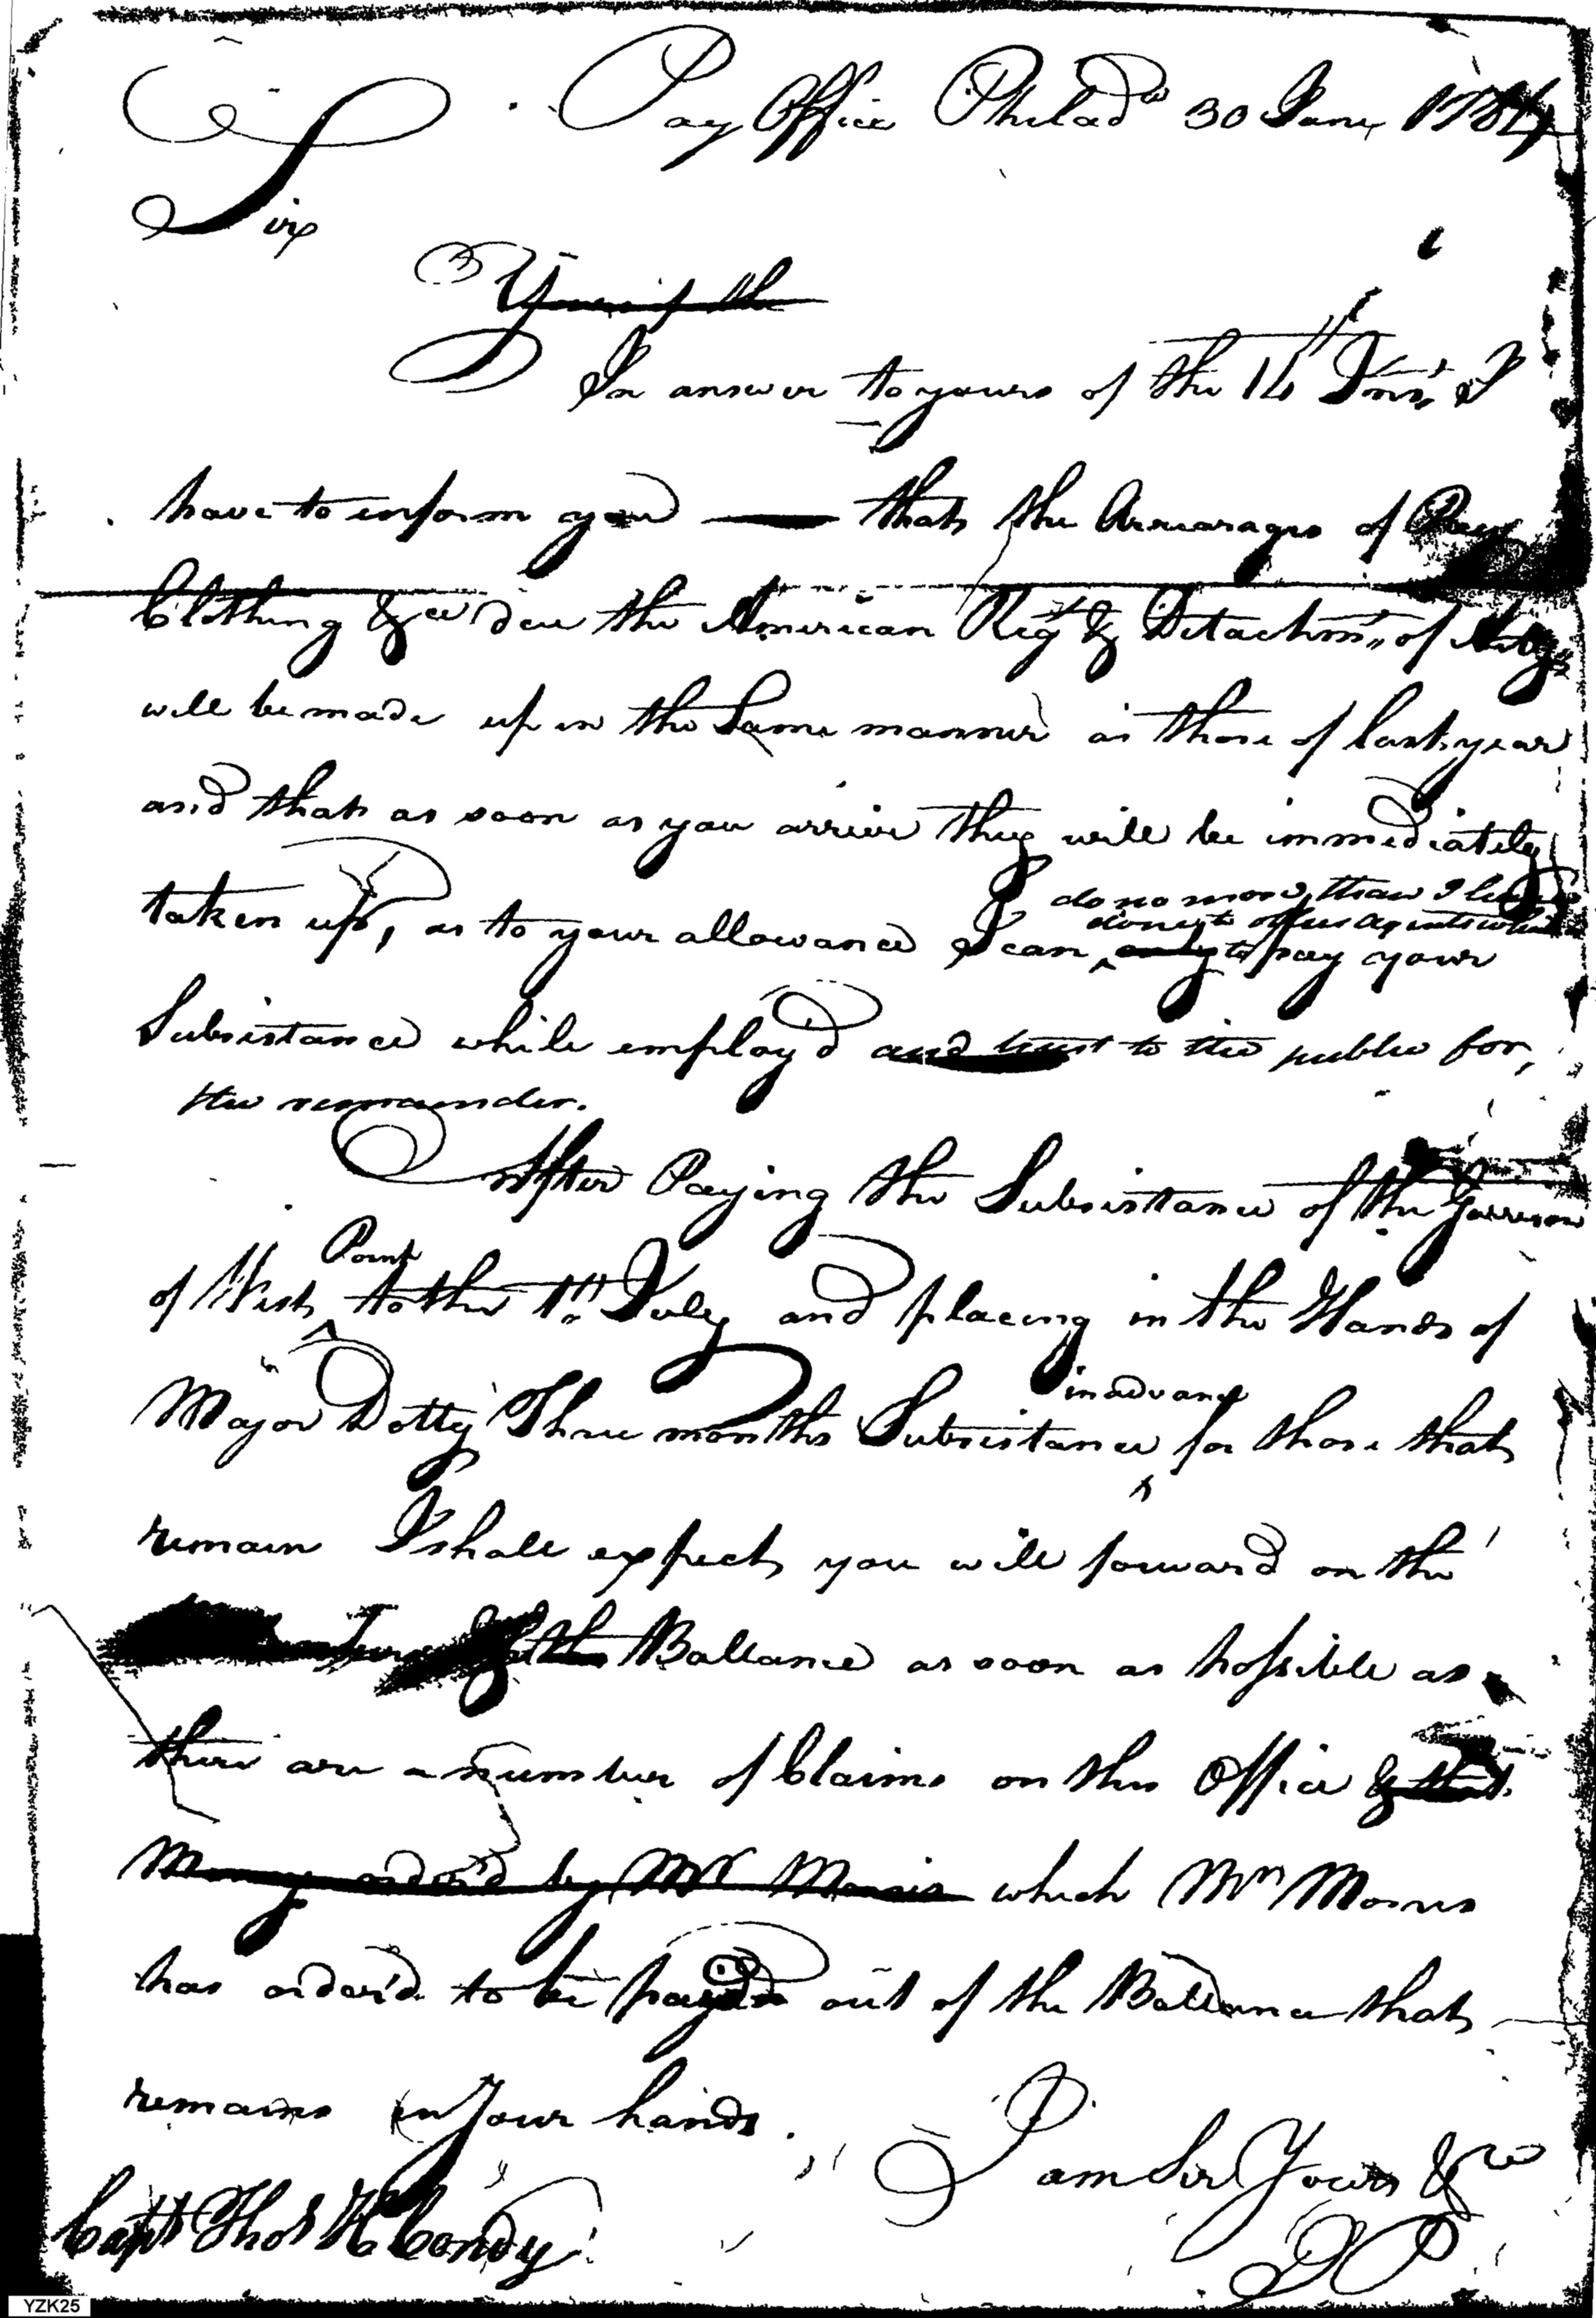 Pay Office Philad.a 30 June 1784
Sir
Yours of the
In answer to yours of the 14th Inst. I
have to inform you — that the Arrearages of Pay
Clothing &ca due the American Regt & Detachmt,, of
will be made up in the Same manner as those of last year
and that as soon as you arrive they will be immediately
do no more than I have
done to other agents which
taken up, as to your allowance I can ^ only to pay your
Subsistance while employ'd and trust to the public for,
the remainder.
After Paying the Subsistance of the Garrison
Point
of West ^ to the 1st July and placing in the Hands of
in advance
Major Dotty Three months Subsistance ^ for those that
remain I shall expect you will forward on the
the Ballance as soon as possible as
there are a number of Claims on this Office & that
Money order'd by Mr Morris which Mr Morris
has order'd to be payed out of the Ballance that
remains in Your hands.
I am Sir Yours &ca
JP
Capt Thos H Condy
YZK25